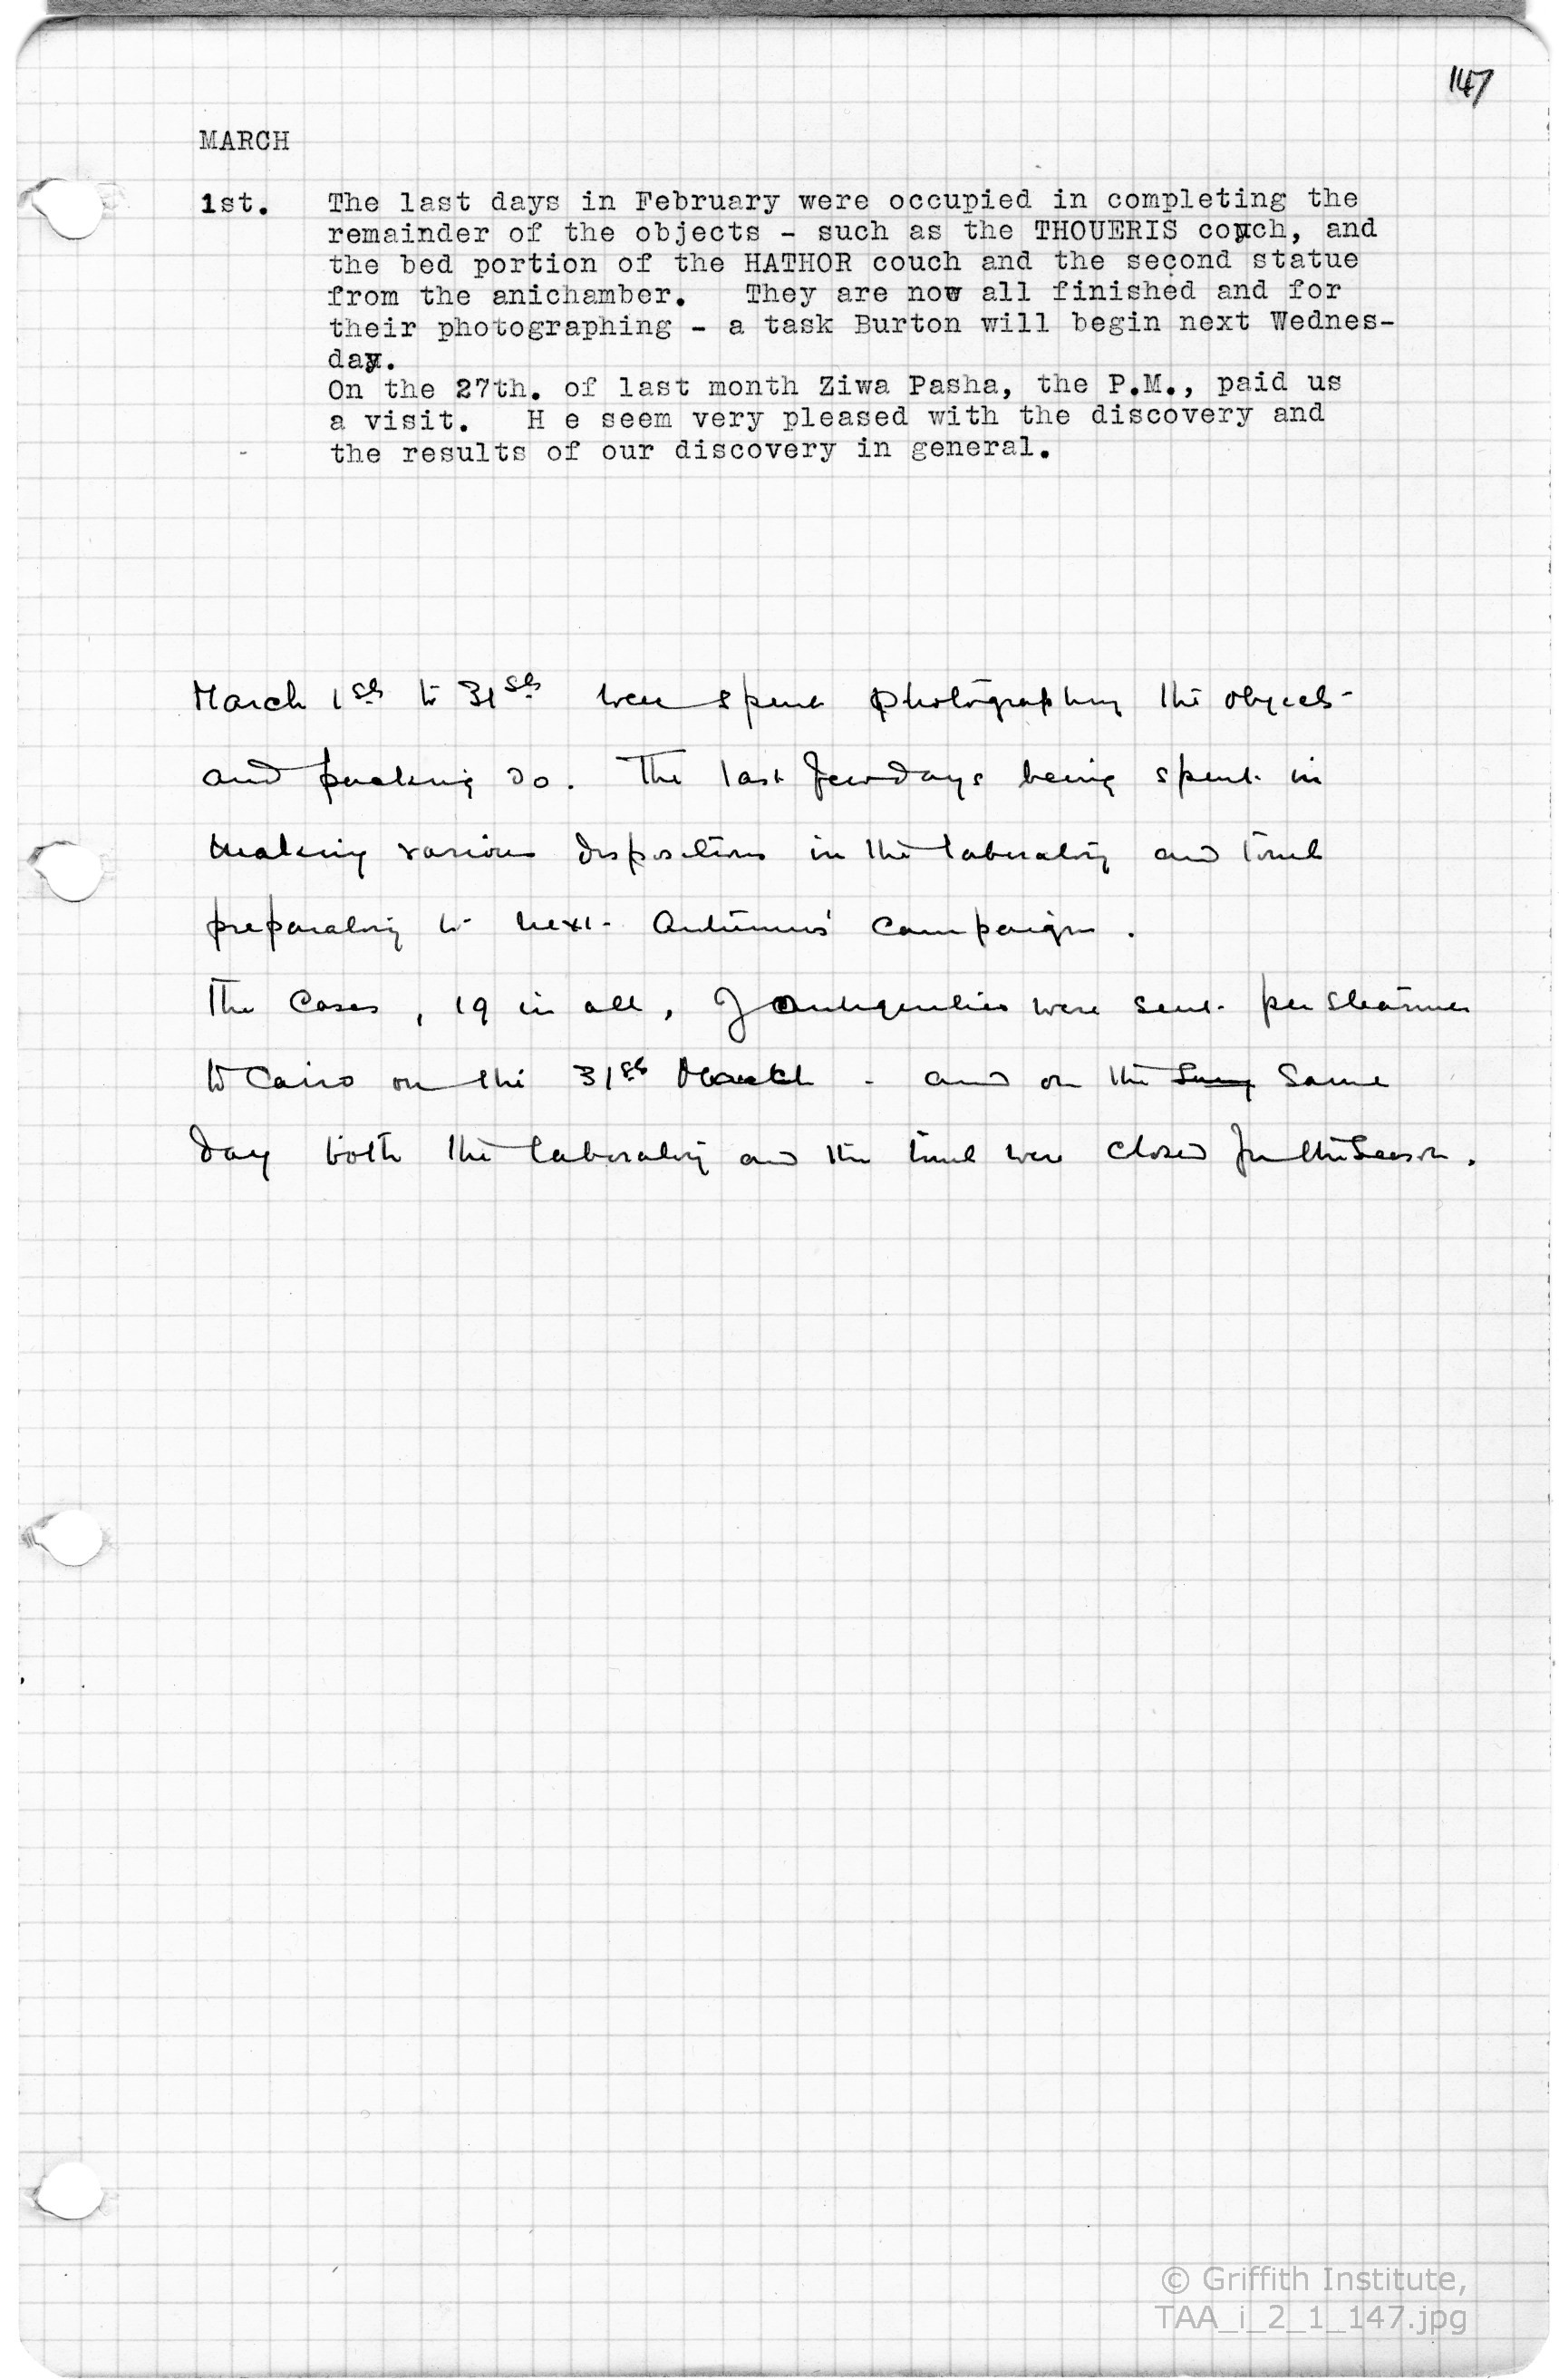 147
MARCH
1st. The last days in February were occupied in completing the
remainder of the objects - such as the THOUERIS couch, and
the bed portion of the HATHOR couch and the second statue
from the anichamber. They are now all finished and for
their photographing - a task Burton will begin next Wednes-
day.
On the 27th. of last month Ziwa Pasha, the P.M., paid us
a visit. H e seem very pleased with the discovery and
the results of our discovery in general.
March 1st to 31st were spent photographing the objects
and packing do. The last few days being spent in
making various dispositions in the laboratory and tomb
preparatory to next Autumns' campaign.
The Cases, 19 in all, of antiquities were sent per steamer
to Cairo on the 31st March - and on the same
day both the laboratory and the tomb were closed for the Season.
© Griffith Institute,
TAA_i_2_1_147.jpg